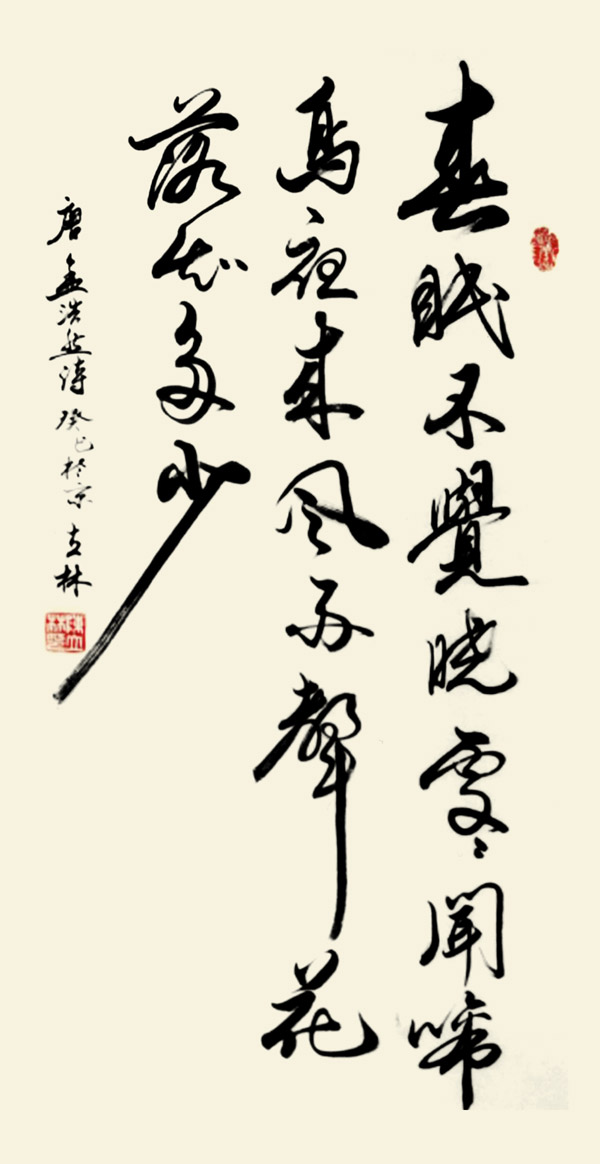 春眠不覺曉處々聞啼
鳥夜来風雨聲花
落知多少
唐孟浩然詩 癸巳於京 立林